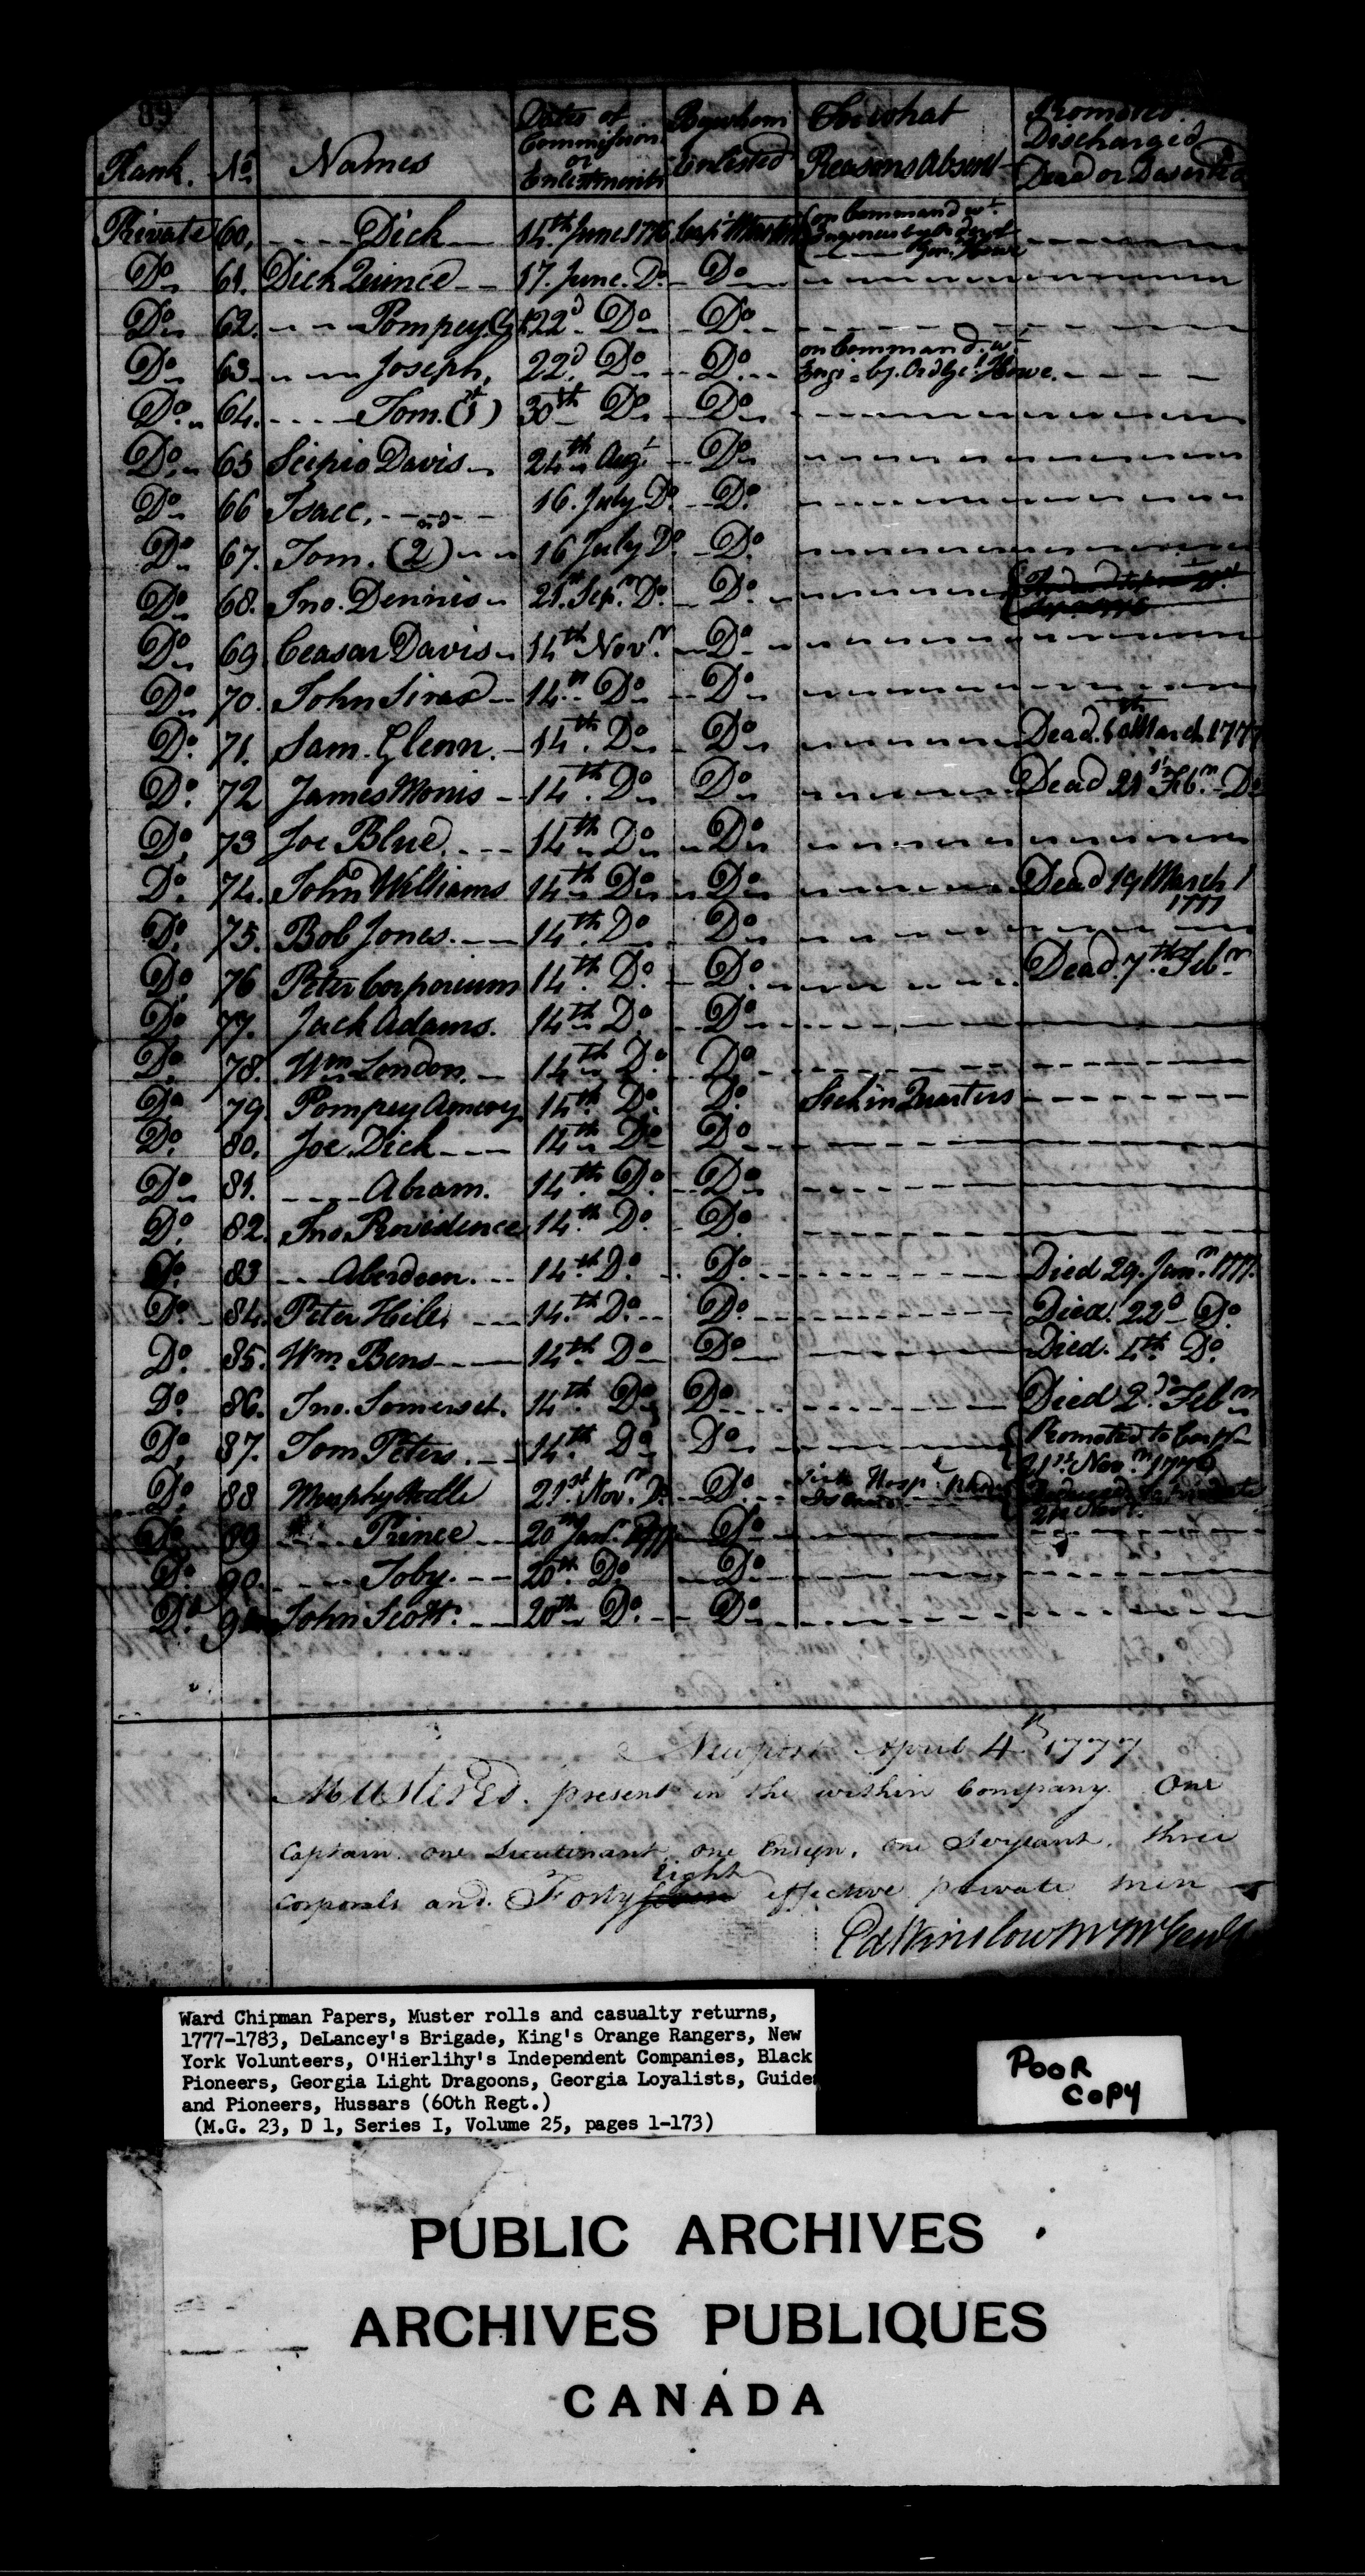 89
Rank. No Names Dates of Commission or Enlistments By whom Enlisted For what Reasons Absent Promoted. Discharged Dead or Deserted
Private 60, ---- Dick 14th June 1776 Capt Martin (on Command wt. Engineers by Order of Gen. Howe
Do 61. Dick Quince 17. June. Do Do
Do 62. Pompey 22d Do Do
Do 63 Joseph, 22d. Do Do on Command. wt Engi - by. Ord Gel. Howe.
Do 64. Tom. (1st) 30th Do Do
Do 65 Scipio Davis 24th Augt Do
Do 66 Isacc. 16. July Do Do
Do 67. Tom. (2nd) 16 July Do Do
Do 68. Jno. Dennis 21st Sepr. Do Do
Do 69 Ceasar Davis 14th Novr. Do
Do 70. John Siras 14th Do Do
Do. 71. Sam. Glenn. 14th. Do Do Dead. 6th March. 1777
Do. 72 James Monis 14th. Do Do Dead 21st Febr. Do
Do. 73 Joe Blue 14th Do Do
Do. 74. John Williams 14th Do Do Dead 19 March 1777
Do. 75. Bob Jones. 14th. Do Do
Do. 76 Peter Corporium 14th. Do. Do. Dead. 7th. Febr
Do. 77. Jack Adams. 14th Do. Do
Do. 78. Wm London. 14th Do. Do
Do. 79. Pompey Amcoy 14th. Do. Do. Sick in Quarters
Do. 80. Joe. Dick 14th Do Do
Do 81. ---- Abram. 14th. Do. Do
Do. 82. Jno. Providence 14.th Do. Do.
Do. 83 --- Aberdeen. 14.th Do. Do. Died 29. Janr. 1777.
Do. 84. Peter Hiles 14.th Do. Do. Died. 22d Do.
Do. 85. Wm Bens 14th. Do Do Died. 4th. Do.
Do 86. Jno. Somerset. 14th Do Do Died 2d. Febr
Do. 87. Tom Peters. 14th. Do Do (Promoted to Corpl 21st. Novr. 1776
Do. 88 Murphy 21st. Novr. Do Do Hosp.
Do 89 Prince 20th Janr. 1777 Do
Do. 90. Toby. 20th. Do. Do
Do. 91 John Scott. 20th Do. Do
Newport April 4th 1777
Mustered. present in the within Company. One
Captain. one Lieutenant, one Ensign, one Serjeant. three
Eight
corporals and. Forty seven effective private men
Ed Winslow
Ward Chipman Papers, Muster rolls and casualty returns,
1777-1783, DeLancey's Brigade, King's Orange Rangers, New
York Volunteers, O'Hierlihy's Independent Companies, Black
Pioneers, Georgia Light Dragoons, Georgia Loyalists, Guides
and Pioneers, Hussars (60th Regt.)
(M.G. 23, D 1, Series I, Volume 25, pages 1-173)
POOR
COPY
PUBLIC ARCHIVES
ARCHIVES PUBLIQUES
CANADA